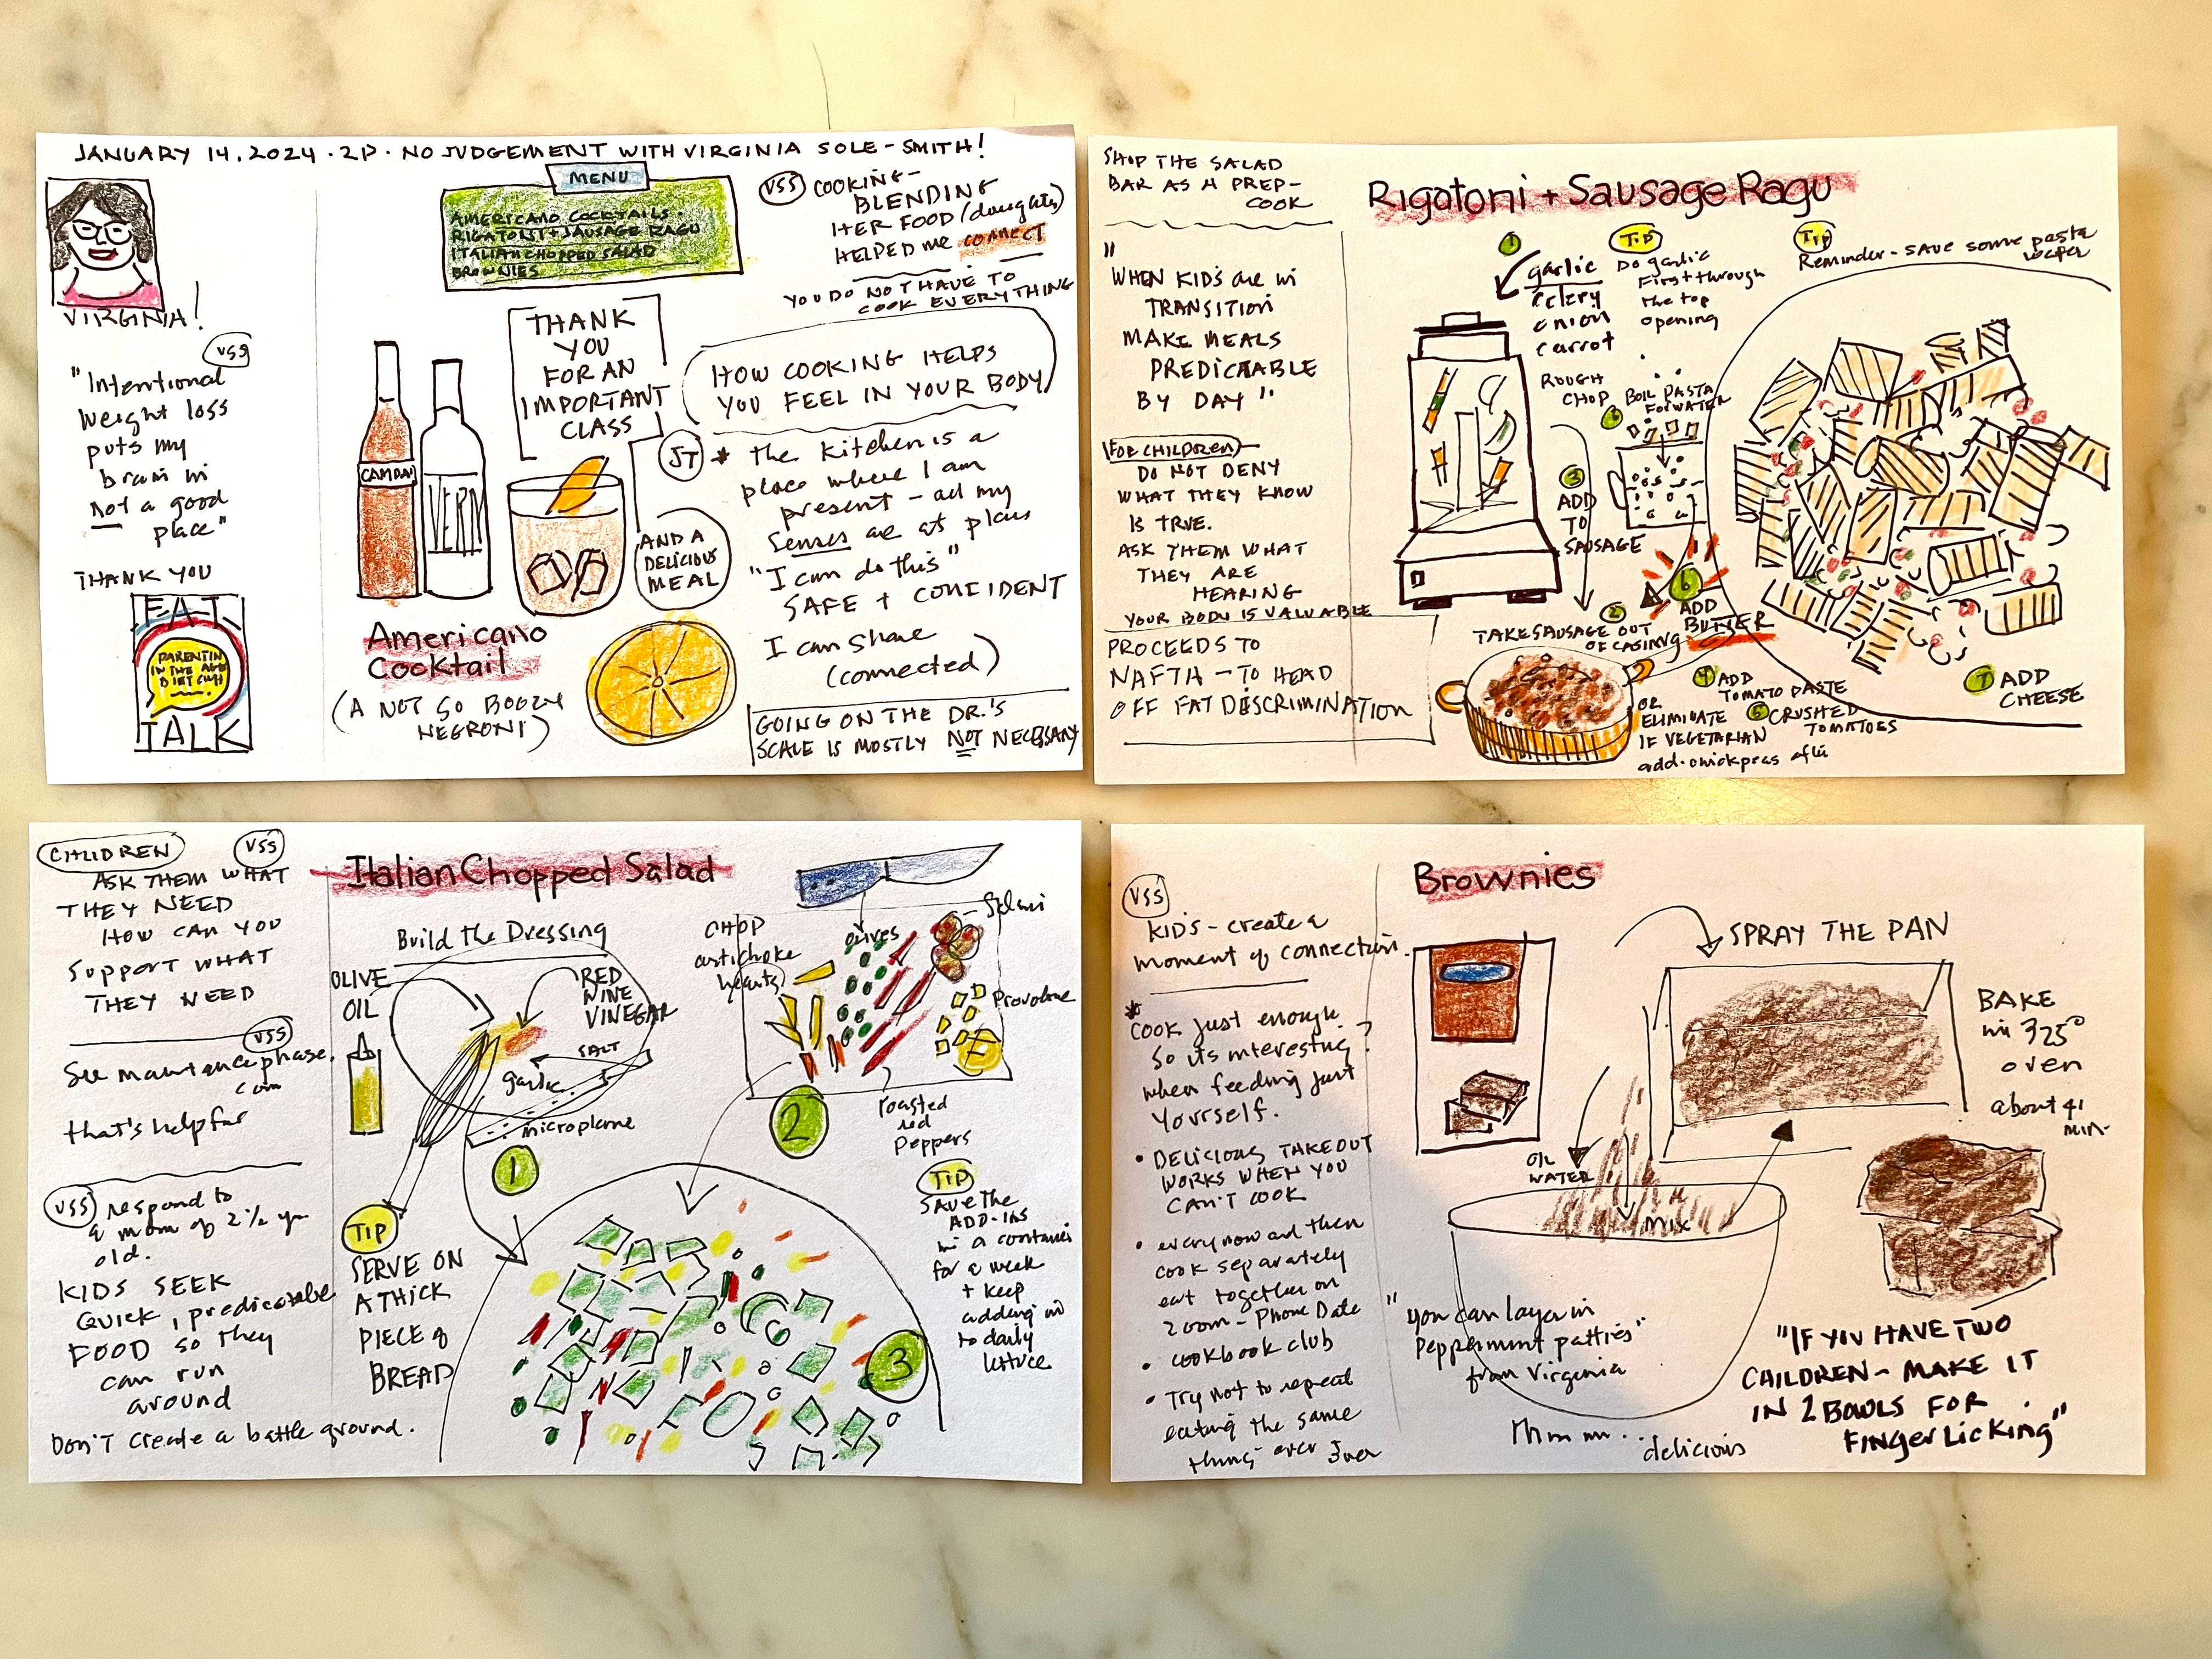 JANUARY 14, 2024 · 2P · NO JUDGEMENT WITH VIRGINIA SOLE-SMITH!
VIRGINIA!
VSS
"Intentional
weight loss
puts my
brain in
not a good
place"
THANK YOU
FAT
PARENTIN
IN THE AGE
DIET CULT
TALK
MENU
AMERICANO COCKTAILS ·
RIGATONI + SAUSAGE RAGU
ITALIAN CHOPPED SALAD
BROWNIES
THANK
YOU
FOR AN
IMPORTANT
CLASS
AND A
DELICIOUS
MEAL
CAMPAI
VERM
Americano
Cocktail
(A NOT SO BOOZY
NEGRONI)
VSS COOKING -
BLENDING
HER FOOD (daughter)
HELPED me CONNECT
YOU DO NOT HAVE TO
COOK EVERYTHING
HOW COOKING HELPS
YOU FEEL IN YOUR BODY
JT * the kitchen is a
place where I am
present - all my
senses are at
"I can do this"
SAFE + CONFIDENT
I can share
(connected)
GOING ON THE DR.'S
SCALE IS MOSTLY NOT NECESSARY
SHOP THE SALAD
BAR AS A PREP-
COOK
"
WHEN KIDS are in
TRANSITION
MAKE MEALS
PREDICTABLE
BY DAY"
FOR CHILDREN
DO NOT DENY
WHAT THEY KNOW
IS TRUE.
ASK THEM WHAT
THEY ARE
HEARING
YOUR BODY IS VALUABLE
PROCEEDS TO
NAFTA - TO HEAD
OFF FAT DISCRIMINATION
Rigatoni + Sausage Ragu
1
garlic
celery
onion
carrot
TIP
Do garlic
First through
the top
opening
TIP
Reminder - save some pasta
water
ROUGH
CHOP
BOIL PASTA
3
ADD
TO
SAUSAGE
2
TAKE SAUSAGE OUT
OF CASING
6
ADD
BUTTER
4 ADD
TOMATO PASTE
5 CRUSHED
TOMATOES
OR
ELIMINATE
IF VEGETARIAN
add chickpeas after
7 ADD
CHEESE
CHILDREN
VSS
ASK THEM WHAT
THEY NEED
HOW CAN YOU
SUPPORT WHAT
THEY NEED
VSS
See maintance phase.
com
that's helpful
VSS respond to
a mom of 2 1/2 yr
old.
KIDS SEEK
QUICK, predicatable
FOOD so they
can run
around
Don't create a battle ground.
Italian Chopped Salad
Build the Dressing
OLIVE
OIL
RED
WINE
VINEGAR
SALT
garlic
microplane
1
TIP
SERVE ON
A THICK
PIECE of
BREAD
CHOP
artichoke
hearts
olives
Salami
Provolone
roasted
red
Peppers
2
TIP
SAVE THE
ADD-INS
in a container
for a week
+ keep
adding in
to daily
lettuce
3
VSS
KIDS - create a
moment of connection.
*
COOK just enough
So its interesting?
when feeding just
Yourself.
• DELICIOUS TAKEOUT
WORKS WHEN YOU
CAN'T COOK
• every now and then
cook separately
eat together on
Zoom - Phone Date
• cookbook club
• Try not to repeat
eating the same
thing over + over
Brownies
SPRAY THE PAN
BAKE
in 325°
oven
about 41
min-
OIL
WATER
MIX
"you can layer in
Peppermint patties"
from Virginia
Mmmm... delicious
"IF YOU HAVE TWO
CHILDREN - MAKE IT
IN 2 BOWLS FOR
FINGER LICKING"